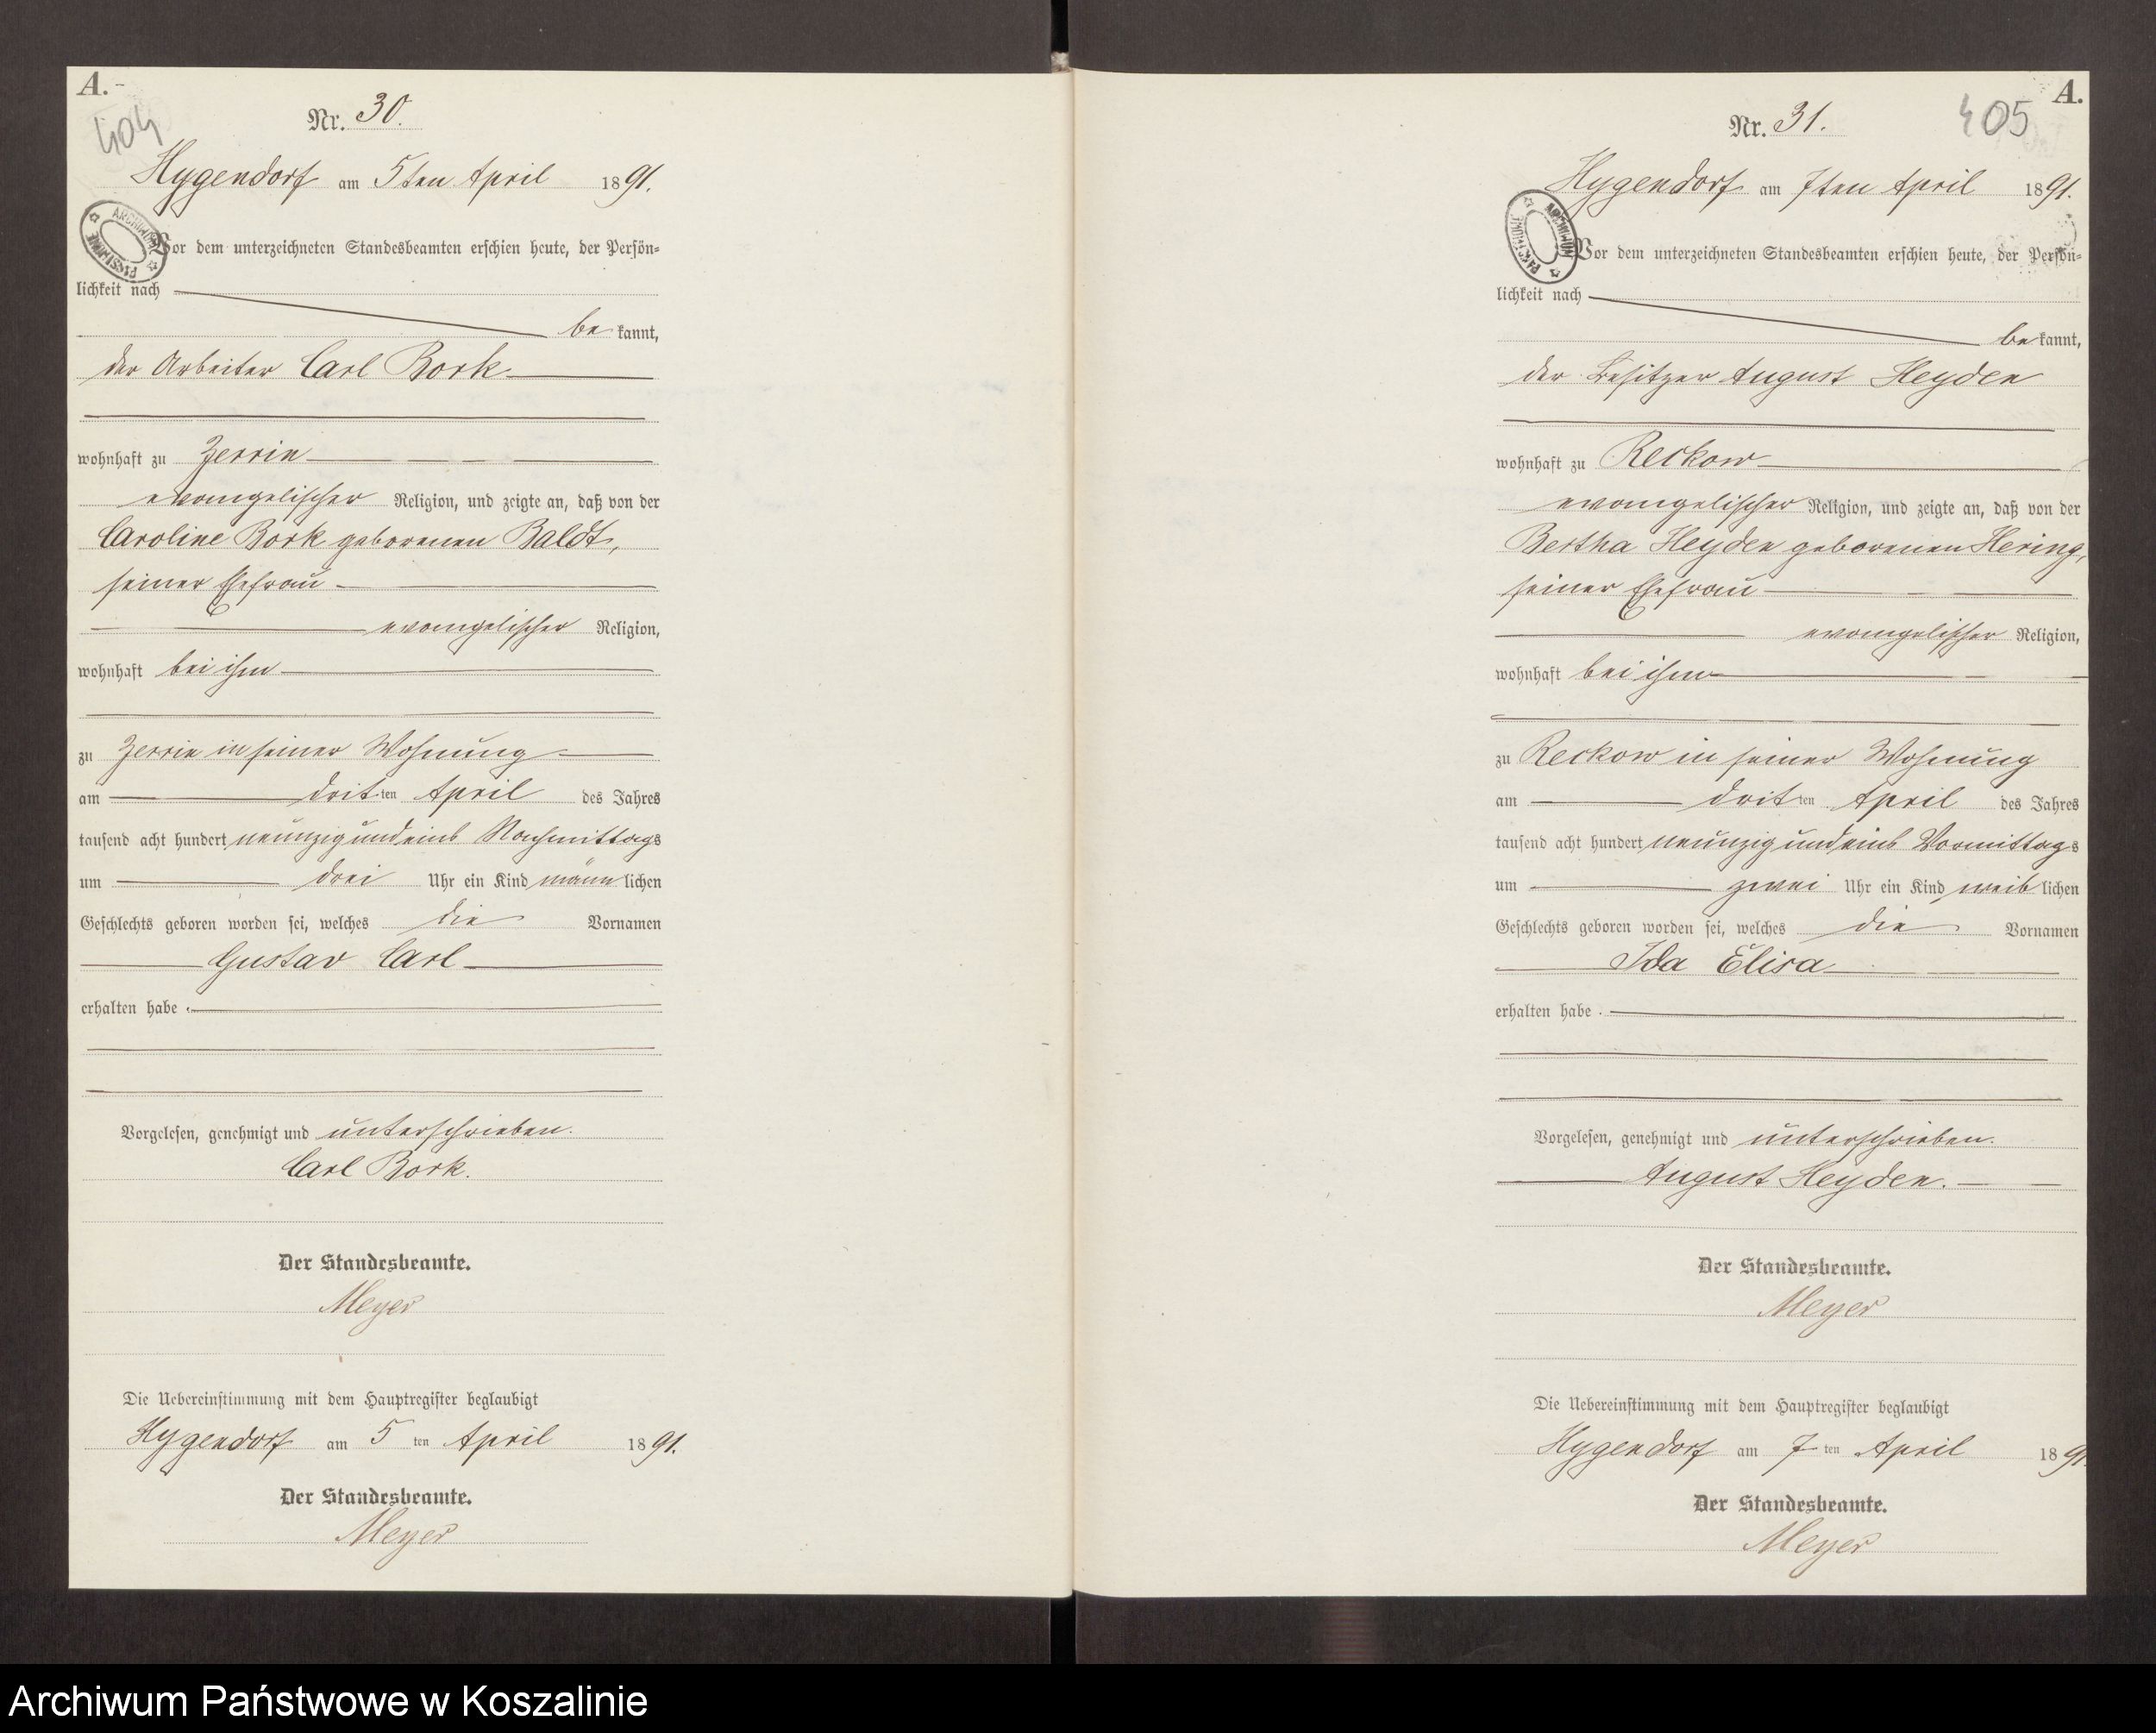 A.
404
Nr. 30.
Hygendorf am 5ten April 1891.
Vor dem unterzeichneten Standesbeamten erschien heute, der Persön-
lichkeit nach
be kannt,
der Arbeiter Carl Bork
wohnhaft zu Zerrin
evangelischer Religion, und zeigte an, daß von der
Caroline Bork geborenen Baldt,
seiner Ehefrau
evangelischer Religion,
wohnhaft bei ihm
zu Zerrin in seiner Wohnung
am dritten April des Jahres
tausend acht hundert neunzig und eins Nachmittags
um drei Uhr ein Kind männlichen
Geschlechts geboren worden sei, welches die Vornamen
Gustav Carl
erhalten habe.
Vorgelesen, genehmigt und unterschrieben.
Carl Bork.
Der Standesbeamte.
Meyer
Die Uebereinstimmung mit dem Hauptregister beglaubigt
Hygendorf am 5 ten April 1891.
Der Standesbeamte.
Meyer
A.
405
Nr. 31.
Hygendorf am 7ten April 1891.
Vor dem unterzeichneten Standesbeamten erschien heute, der Persön-
lichkeit nach
be kannt,
der Besitzer August Heyden
wohnhaft zu Reckow
evangelischer Religion, und zeigte an, daß von der
Bertha Heyden geborenen Hering,
seiner Ehefrau
evangelischer Religion,
wohnhaft bei ihm
zu Reckow in seiner Wohnung
am dritten April des Jahres
tausend acht hundert neunzig und eins Vormittags
um zwei Uhr ein Kind weiblichen
Geschlechts geboren worden sei, welches die Vornamen
Ida Elisa
erhalten habe.
Vorgelesen, genehmigt und unterschrieben.
August Heyden.
Der Standesbeamte.
Meyer
Die Uebereinstimmung mit dem Hauptregister beglaubigt
Hygendorf am 7 ten April 1891
Der Standesbeamte.
Meyer
Archiwum Państwowe w Koszalinie